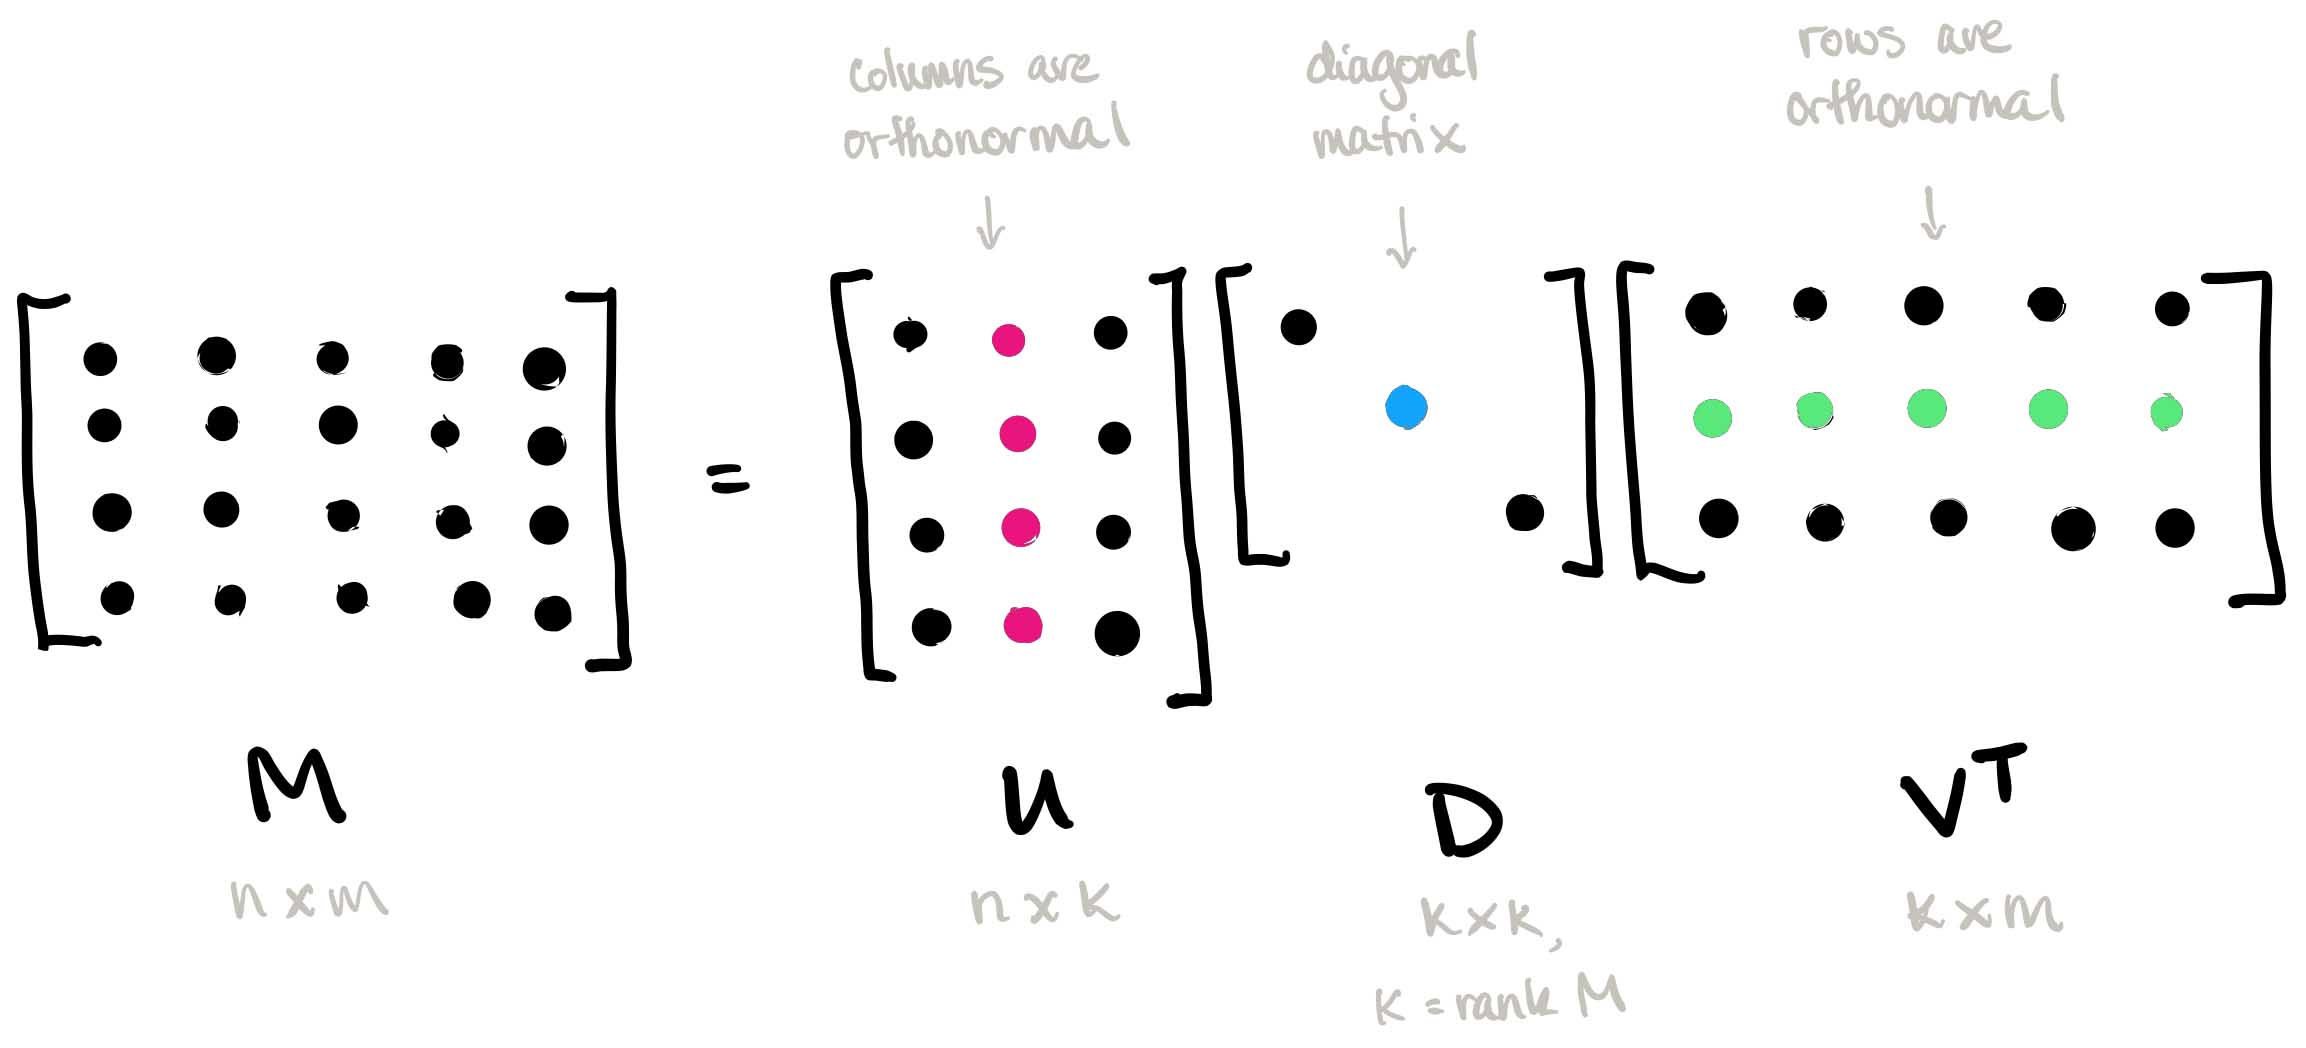 columns are
orthonormal
diagonal
matrix
rows are
orthonormal
=
M
n x m
U
n x k
D
k x k,
k = rank M
V^T
k x m